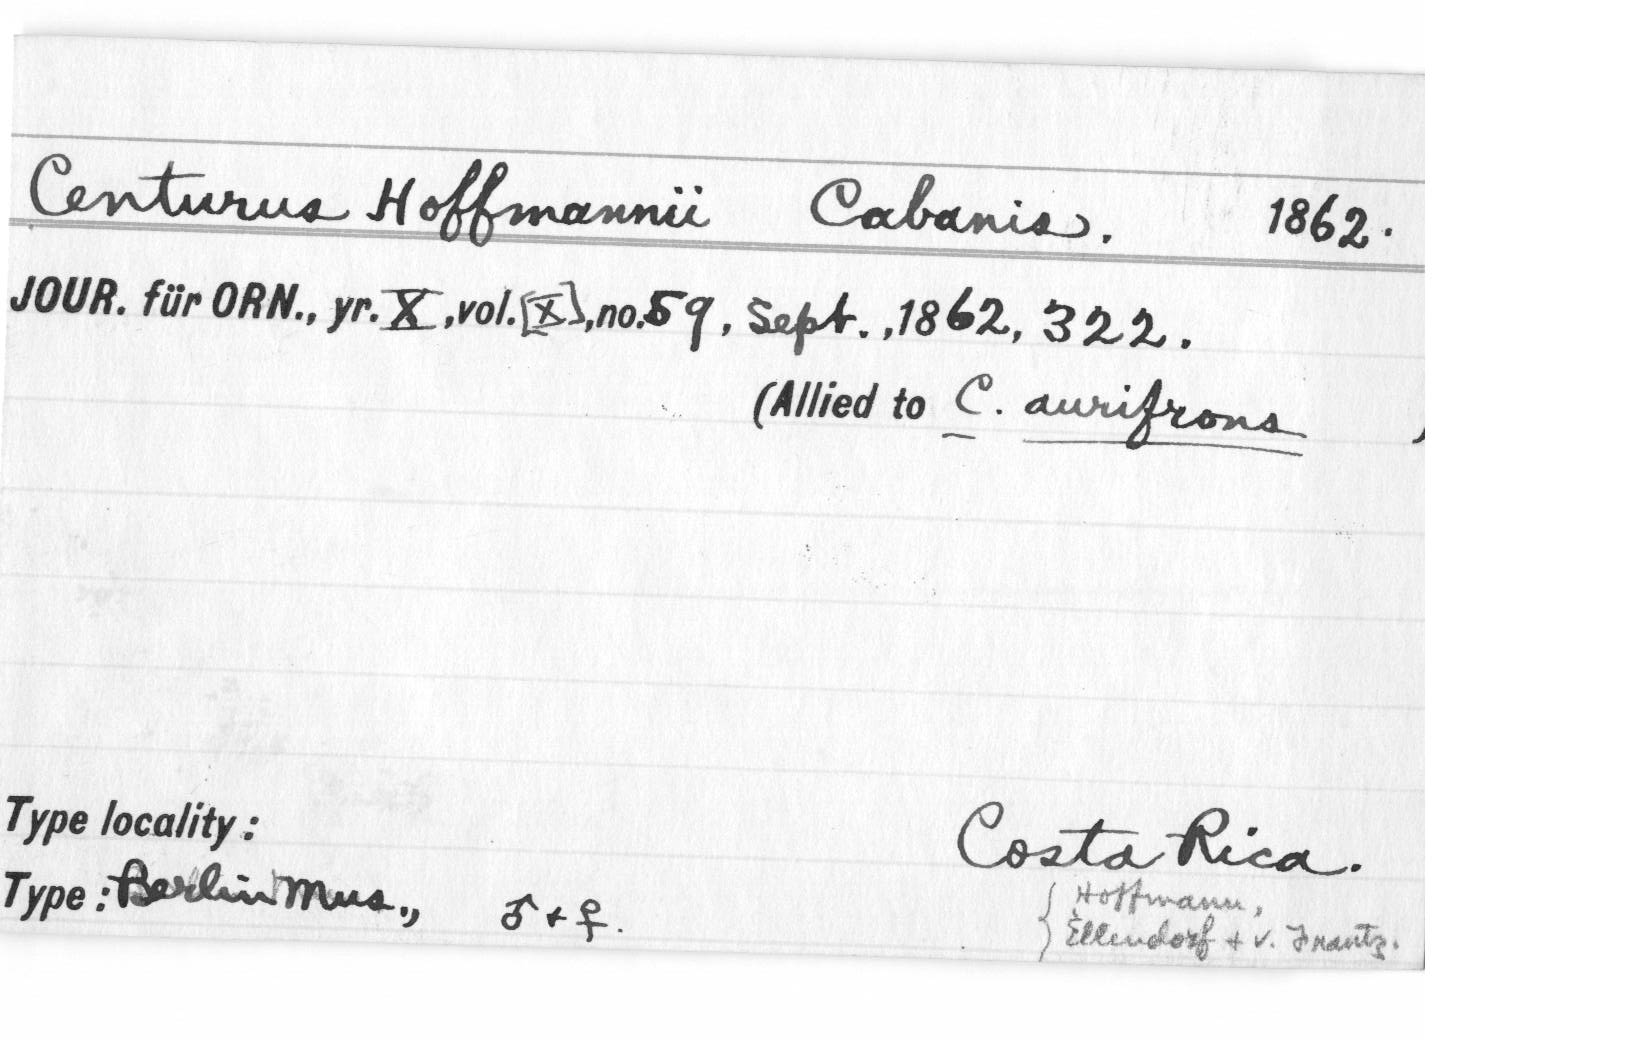 Centurus Hoffmannii Cabanis. 1862.
JOUR. für ORN., yr. X, vol. [X], no. 59, Sept., 1862, 322.
(Allied to C. aurifrons )
Type locality: Costa Rica.
Type: Berlin Mus., ♂ + ♀.
{ Hoffmann,
Ellendorf + v. Frantz.